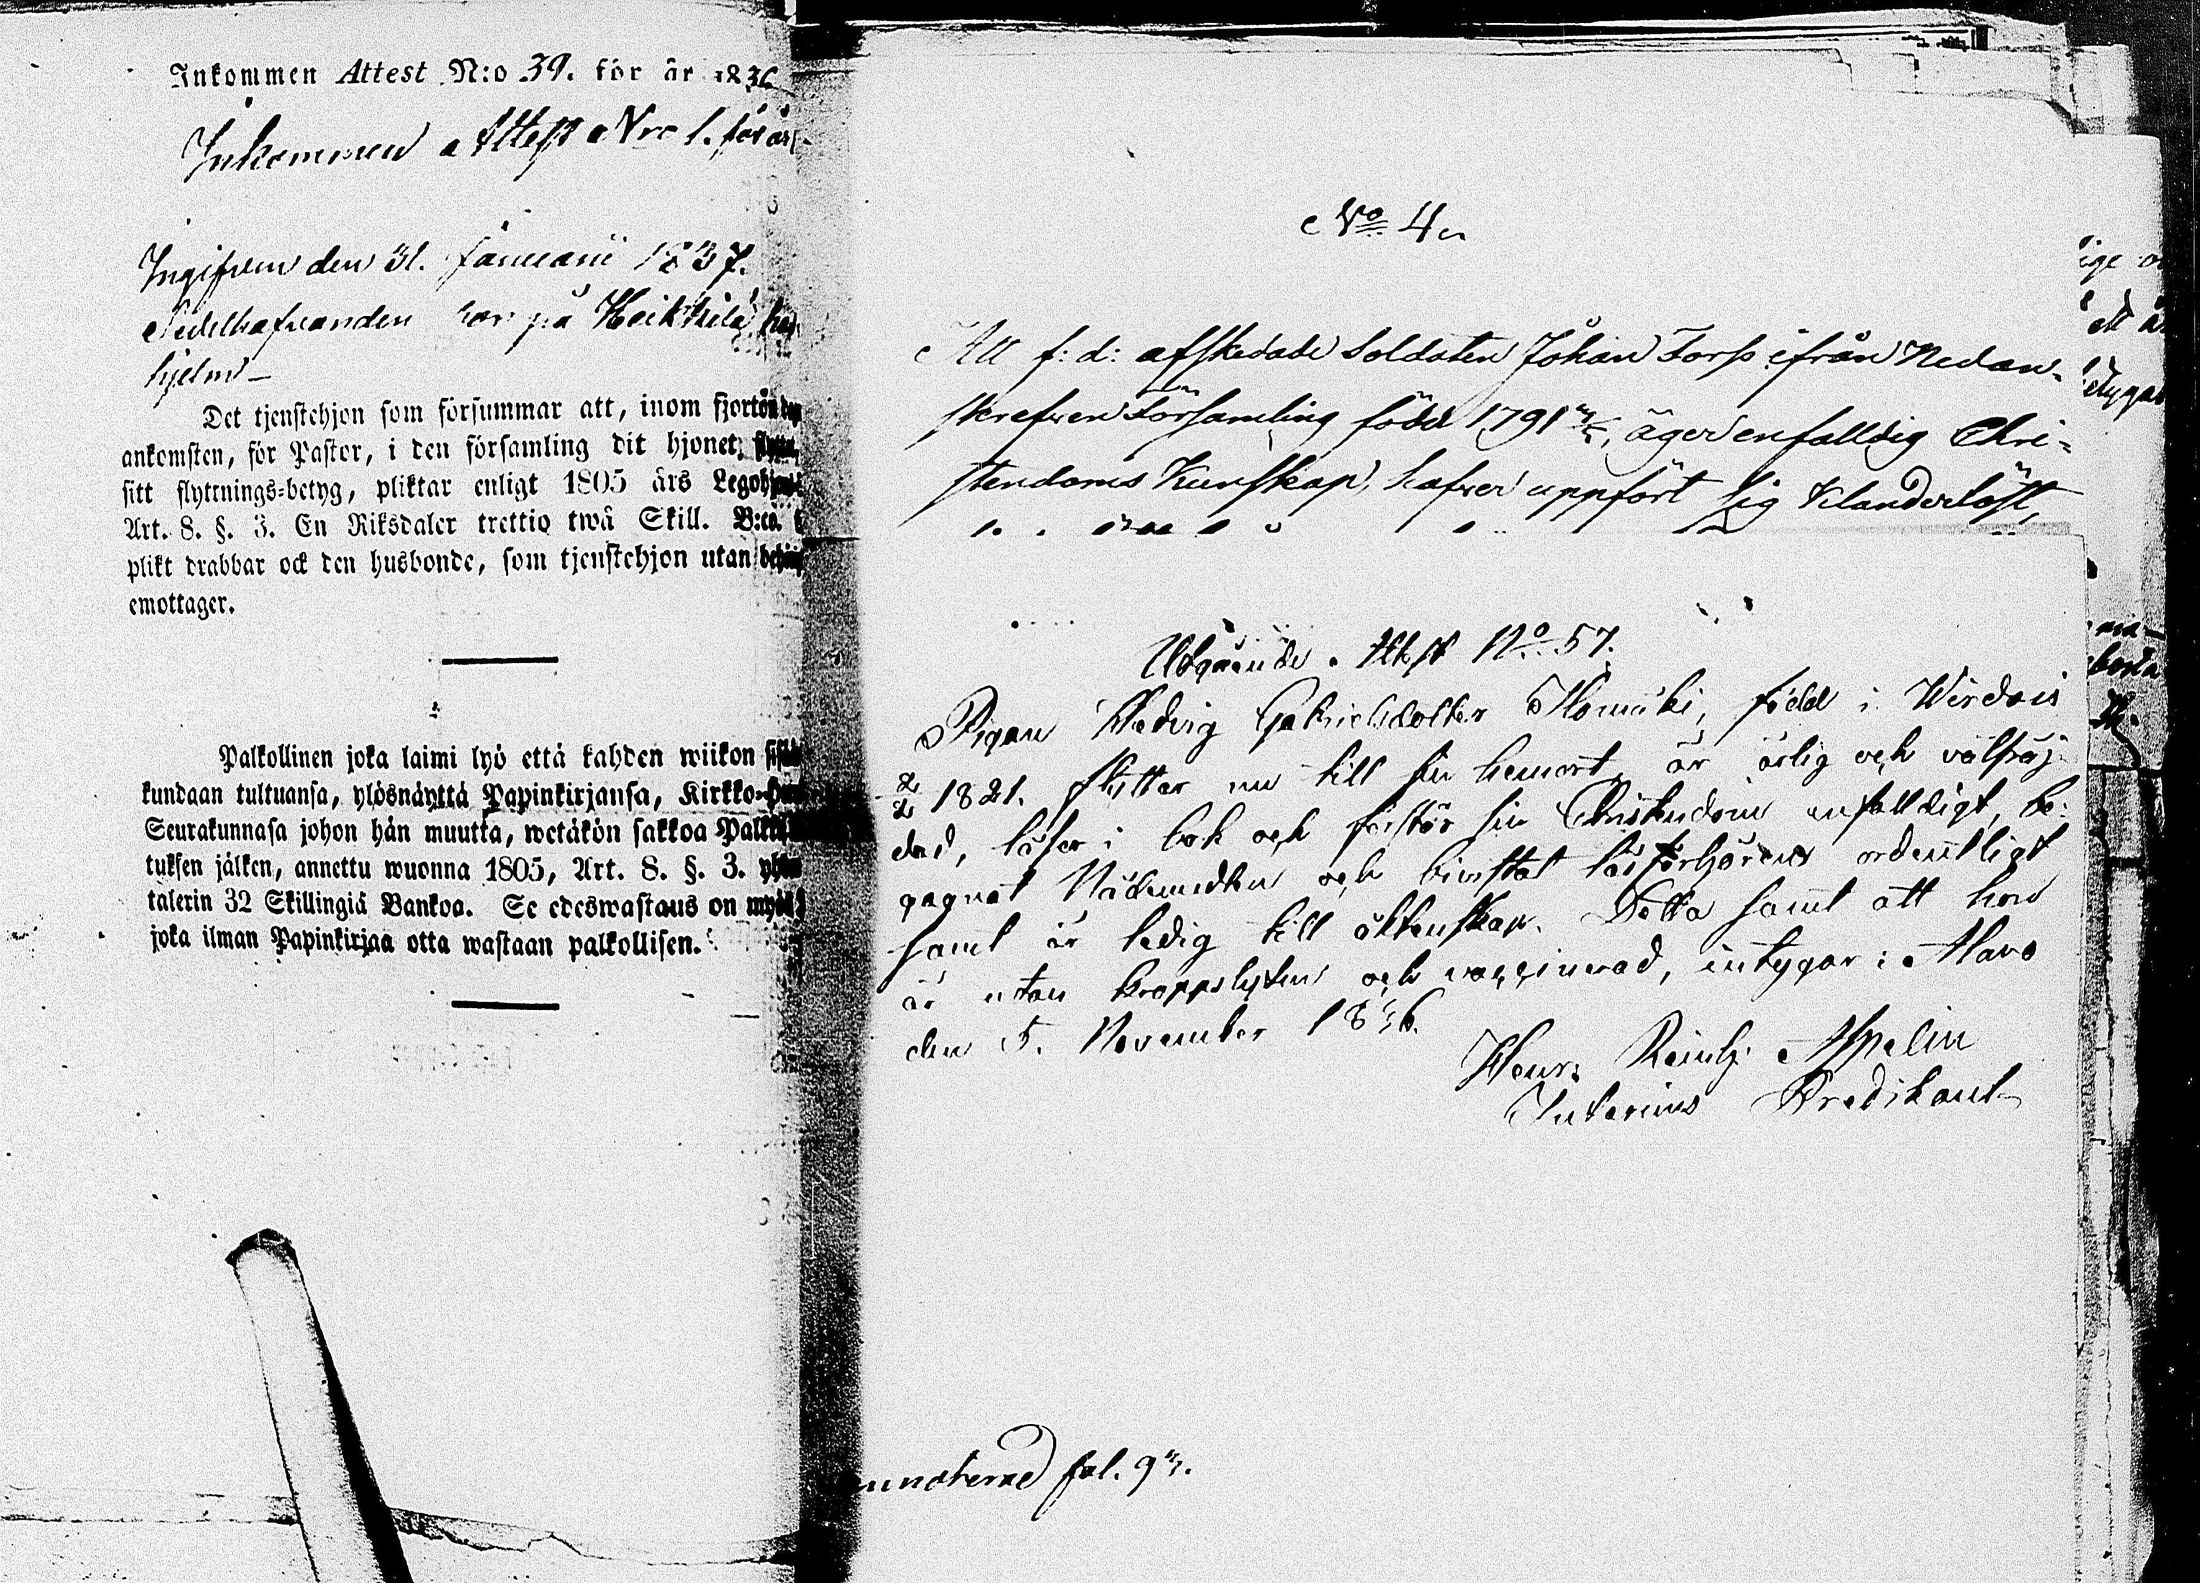 Inkommen Attest N:o 39. för år 1836
Inkommen Attest Nro 1. för år
Ingifven den 31. Januarii 1837.
Sedelhafvanden har på Heikkilä
hjelm –
Det tjenstehjon som försummar att, inom fjorton dag
ankomsten, för Pastor, i den församling dit hjonet flytta,
sitt flyttnings-betyg, pliktar enligt 1805 års Legohjons
Art. 8. §. 3. En Riksdaler trettio twå Skill. B:co.
plikt drabbar ock den husbonde, som tjenstehjon utan
emottager.
Palkollinen joka laimi lyö että kahden wiikon
kundaan tultuansa, ylösnäyttä Papinkirjansa, Kirkko-
Seurakunnasa johon hän muutta, wetäkön sakkoa
tuksen jälken, annettu wuonna 1805, Art. 8. §. 3.
talerin 32 Skillingiä Bankoa. Se edeswastaus on
joka ilman Papinkirjaa otta wastaan palkollisen.
No 4.
Att f: d: afskedade Soldaten Johan Fors ifrån Nedan-
skrefven Församling född 1791, äger enfalldig Chri-
stendoms Kunskap, hafver uppfört sig Klanderlöst,
Utgående Attest No 57.
Pigan Hedvig Gabrielsdotter Homäki, född i Wirdois
1821. flyttar nu till sin hemort, är ärlig och välfräj-
dad, läser i bok och förstår sin Christendom enfalldigt, be-
gagnat Nådemedlen och bivistat läsförhören ordentligt
samt är ledig till äktenskap. Detta samt att hon
är utan kroppslyten och vaccinerad, intygar: Alavo
den 5. November 1846.
Henr. Reinh. Aspelin
Interims Predikant
annoterad fol. 93.